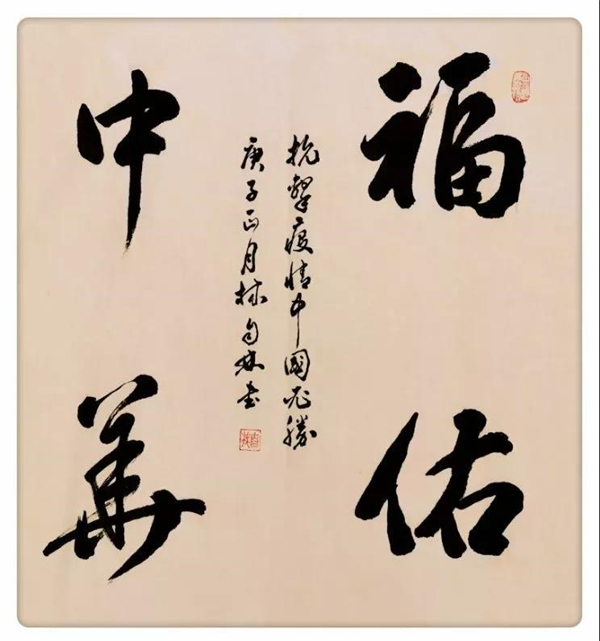 福佑
中華
抗擊疫情中國必勝
庚子正月 書